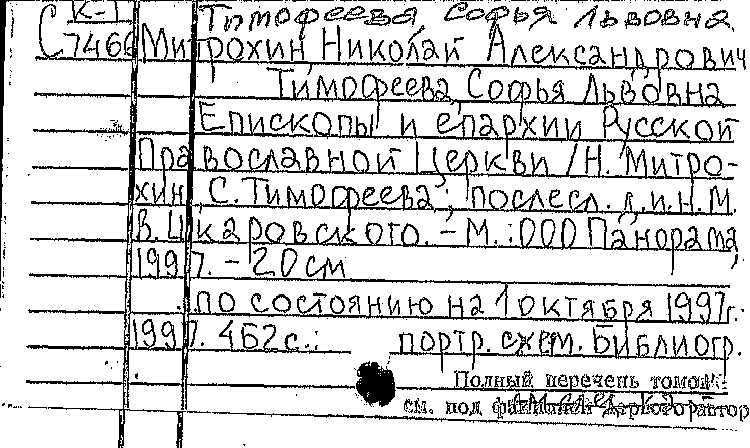 К-1 Тимофеева, Софья Львовна
С 7466 Митрохин, Николай Александрович
Тимофеева, Софья Львовна
Епископы и епархии Русской
Православной Церкви / Н. Митро-
хин, С. Тимофеева; послесл. д.и.н. М.
В. Шкаровского. - М.: ООО Панорама,
1997. - 20 см
по состоянию на 1 октября 1997г.
1997. 462 с.: портр. схем. Библиогр.
Полный перечень томов
см. под